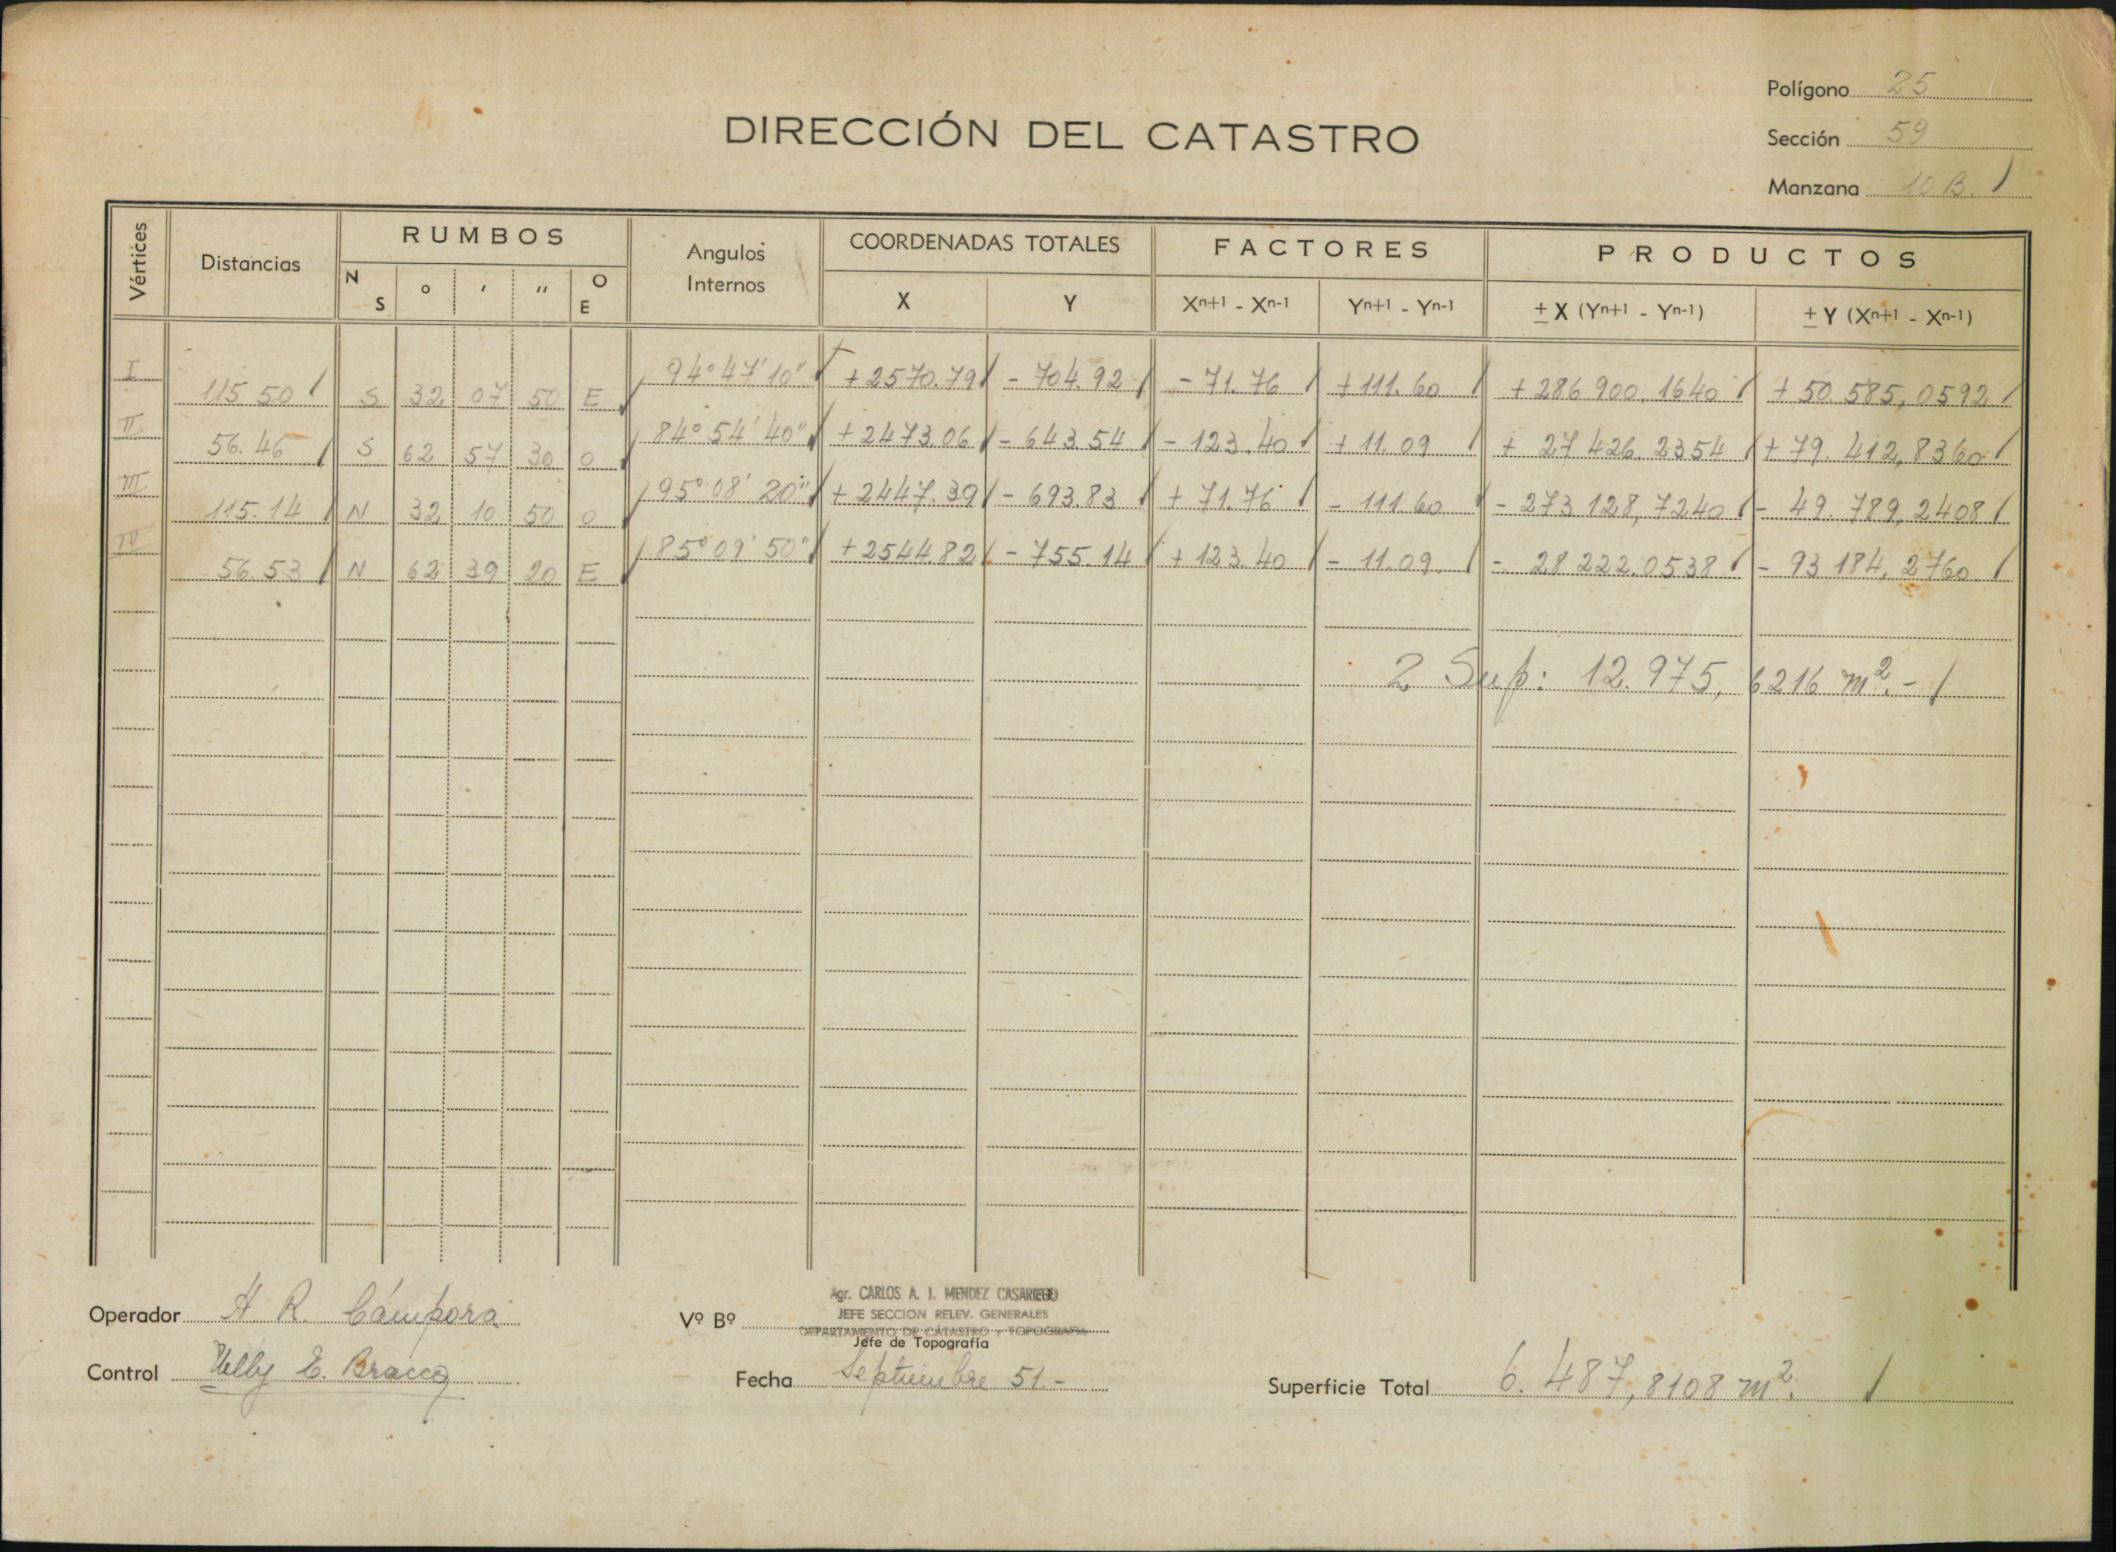 Polígono 25
DIRECCIÓN DEL CATASTRO
Sección 59
Manzana 10 B. /
Vértices Distancias RUMBOS Angulos Internos COORDENADAS TOTALES FACTORES PRODUCTOS
N S ° ' " O E X Y Xn+1 - Xn-1 Yn+1 - Yn-1 ± X (Yn+1 - Yn-1) ± Y (Xn+1 - Xn-1)
I 115 50 / S 32 07 50 E / 94° 47' 10" / +2570.79 / - 704.92 / - 71.76 / +111.60 / + 286 900.1640 / + 50.585,0592 /
II 56.46 / S 62 57 30 O / 84° 54' 40" / +2473.06 / - 643.54 / - 123.40 / + 11.09 / + 27 426.2354 / + 79.412,8360 /
III 115.14 / N 32 10 50 O / 95° 08' 20" / +2447.39 / - 693.83 / + 71.76 / - 111.60 / - 273 128,7240 / - 49.789,2408 /
IV 56.53 / N 62 39 20 E / 85° 09' 50" / +2544.82 / - 755.14 / + 123.40 / - 11.09 / - 28 222.0538 / - 93 184,2760 /
2 Sup: 12.975,6216 m². - /
Operador H. R. Cámpora
Vº Bº Agr. CARLOS A. J. MENDEZ CASARIEGO
JEFE SECCION RELEV. GENERALES
DEPARTAMENTO DE CATASTRO Y TOPOGRAFIA
Jefe de Topografía
Control Nelly E. Bracco
Fecha Septiembre 51.-
Superficie Total 6.487,8108 m². /